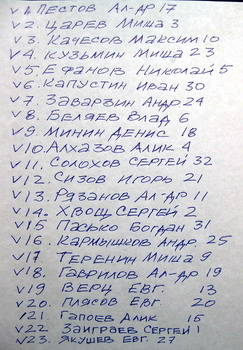 V 1. ПЕСТОВ АЛ-ДР 17
V 2. ЦАРЕВ МИША 3
V 3. КАЧЕСОВ МАКСИМ 10
V 4. КУЗЬМИН МИША 23
V 5. ЕФАНОВ НИКОЛАЙ 5
V 6. КАПУСТИН ИВАН 30
V 7. ЗАВАРЗИН АНДР 24
V 8. БЕЛЯЕВ ВЛАД 6
V 9. МИНИН ДЕНИС 18
V 10. АЛХАЗОВ АЛИК 4
V 11. СОЛОХОВ СЕРГЕЙ 32
V 12. СИЗОВ ИГОРЬ 21
V 13. РЯЗАНОВ АЛ-ДР 11
V 14. ХВОЩ СЕРГЕЙ 2
V 15 ПАСЬКО БОГДАН 31
V 16. КАРМЫШКОВ АНДР. 25
V 17 ТЕРЕНИН МИША 9
V 18. ГАВРИЛОВ АЛ-ДР 19
V 19 ВЕРЦ ЕВГ. 13
V 20. ПЛЯСОВ ЕВГ 20
V 21. ГАПОЕВ АЛИК 15
V 22 ЗАИГРАЕВ СЕРГЕЙ 1
V 23. ЯКУШЕВ ЕВГ. 27